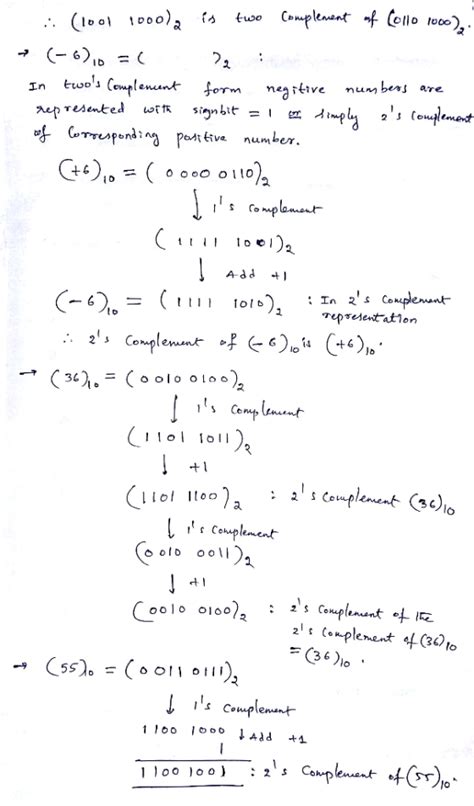 ∴ (1001 1000)₂ is two complement of (0110 1000)₂.
→ (-6)₁₀ = (        )₂ :
In two's complement form negitive numbers are
represented with signbit = 1 or simply 2's complement
of corresponding positive number.
(+6)₁₀ = (0000 0110)₂
↓ 1's complement
(1111 1001)₂
↓ Add +1
(-6)₁₀ = (1111 1010)₂ : In 2's complement
representation
∴ 2's complement of (-6)₁₀ is (+6)₁₀.
→ (36)₁₀ = (0010 0100)₂
↓ 1's complement
(1101 1011)₂
↓ +1
(1101 1100)₂ : 2's complement (36)₁₀
↓ 1's complement
(0010 0011)₂
↓ +1
(0010 0100)₂ : 2's complement of the
2's complement of (36)₁₀
= (36)₁₀.
→ (55)₁₀ = (0011 0111)₂
↓ 1's complement
1100 1000 ↓ Add +1
1
1100 1001 : 2's complement of (55)₁₀.